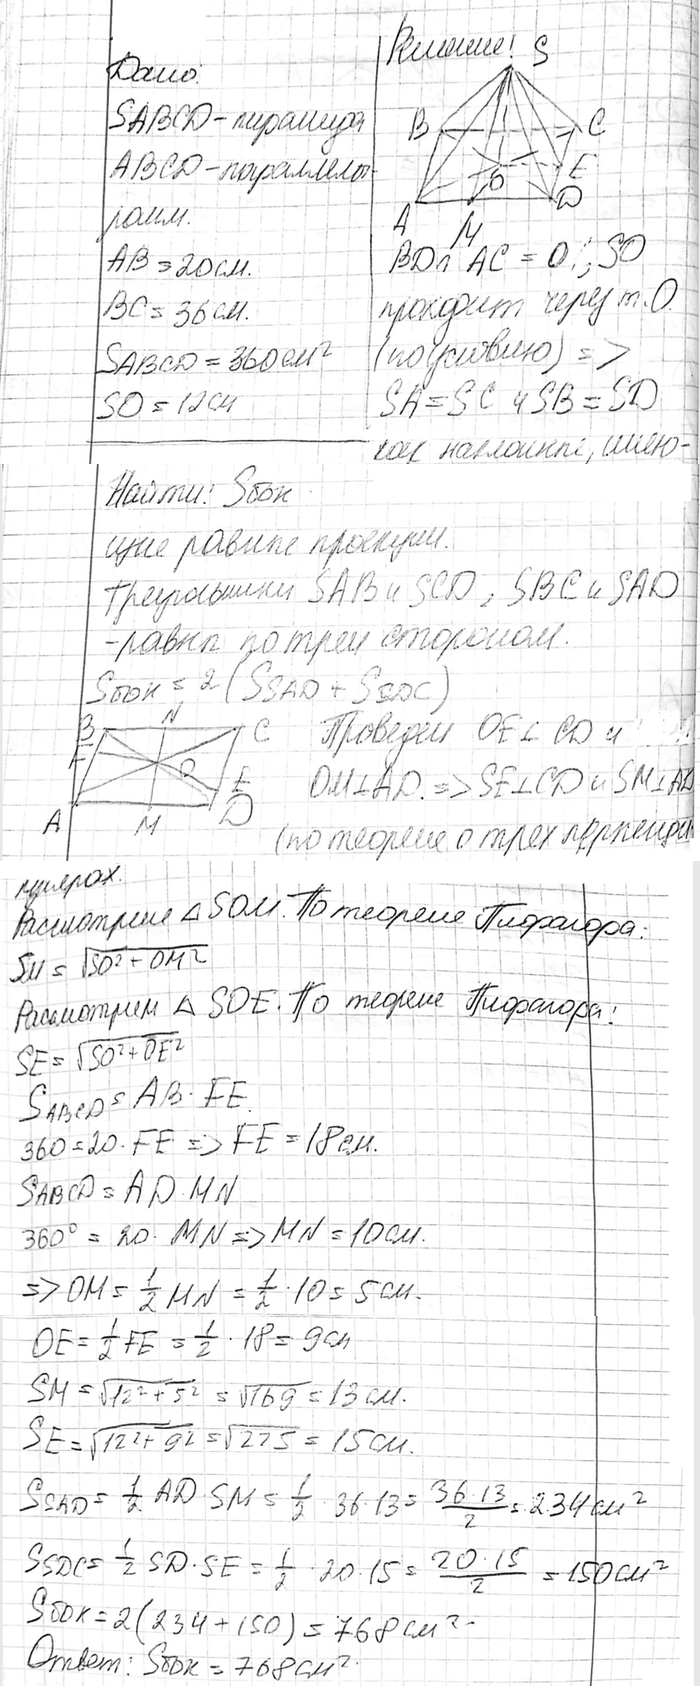 Дано:
SABCD - пирамида
ABCD - параллело-
грамм.
AB = 20 см.
BC = 36 см.
SABCD = 360 см²
SO = 12 см
Решение:
S
B
C
O
E
A
M
D
BD∩AC = O; SO
проходит через т.О.
(по условию) =>
SA = SC и SB = SD
как наклонные, имею-
Найти: Sбок
щие равные проекции.
Треугольники SAB и SCD, SBC и SAD
- равны по трем сторонам.
Sбок = 2 (SSAD + SSDC)
B
N
C
F
O
E
A
M
D
Проведем OE⊥CD и
OM⊥AD. => SE⊥CD и SM⊥AD
(по теореме о трех перпенди
кулярах.
Рассмотрим △ SOM. По теореме Пифагора:
SM = √SO² + OM²
Рассмотрим △ SOE. По теореме Пифагора:
SE = √SO² + OE²
SABCD = AB · FE.
360 = 20 · FE => FE = 18 см.
SABCD = AD · MN
360° = 20 · MN => MN = 10 см.
=> OM = 1/2 MN = 1/2 · 10 = 5 см.
OE = 1/2 FE = 1/2 · 18 = 9 см
SM = √12² + 5² = √169 = 13 см.
SE = √12² + 9² = √225 = 15 см.
SSAD = 1/2 AD · SM = 1/2 · 36 · 13 = 36 · 13/2 = 234 см²
SSDC = 1/2 SD · SE = 1/2 · 20 · 15 = 20 · 15/2 = 150 см²
Sбок = 2(234 + 150) = 768 см².
Ответ: Sбок = 768 см².